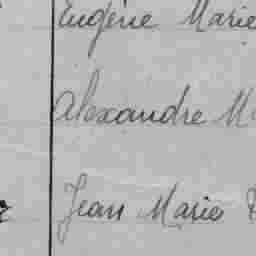 Eugène Marie
Alexandre
Jean Marie